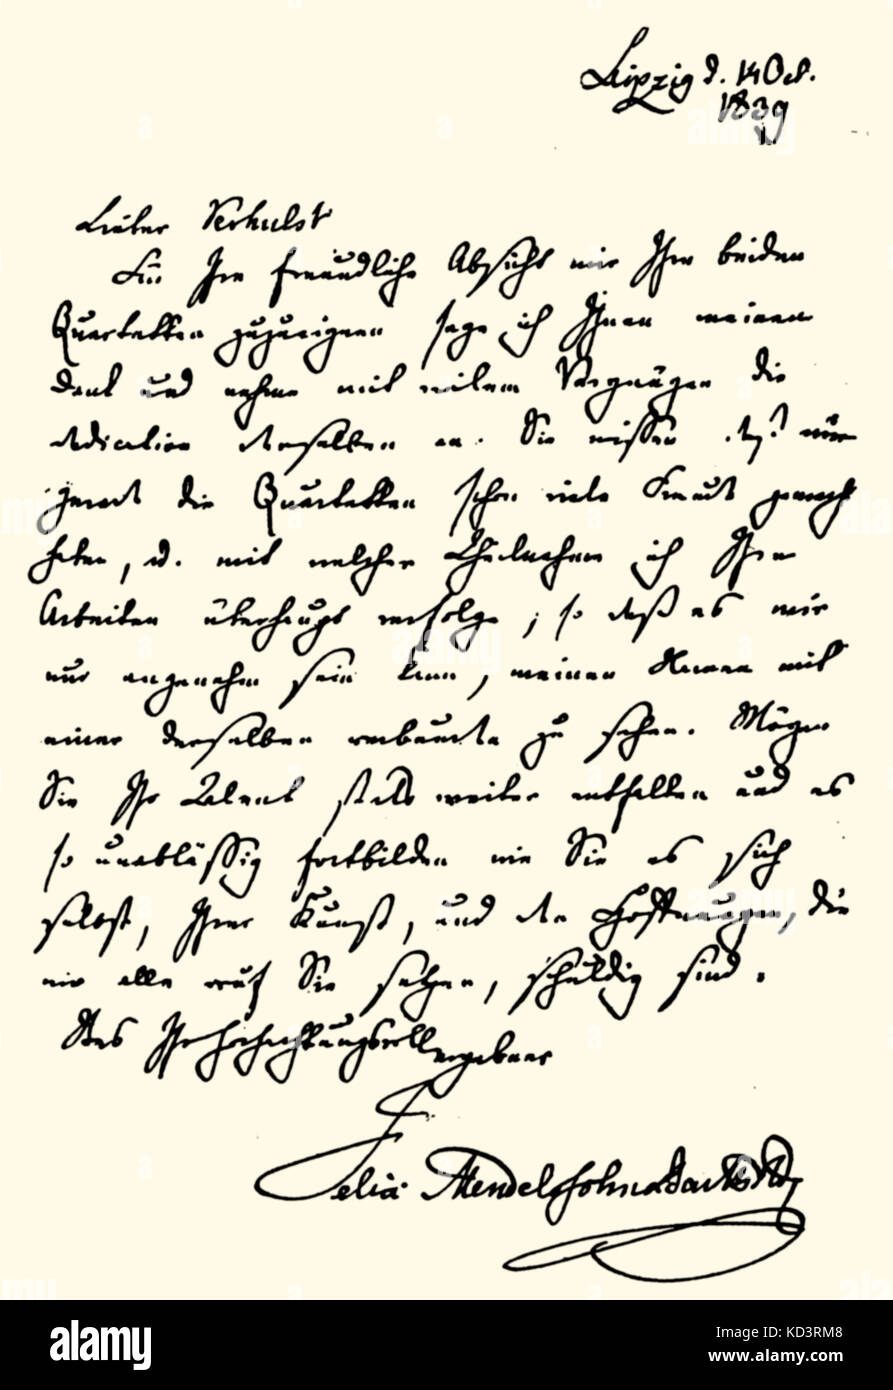 Leipzig d. 14 Oct.
1839
Lieber Verhulst
Für Ihre freundliche Absicht mir Ihre beiden
Quartetten zuzueignen sage ich Ihnen meinen
Dank und nehme mit vielem Vergnügen die
Dedication derselben an. Sie wissen daß mir
die Quartetten schon viele Freude gemacht
haben, u. mit welcher Theilnahme ich Ihre
Arbeiten überhaupt verfolge; so daß es mir
nur angenehm sein kann, meinen Namen mit
einer derselben zu sehen. Mögen
Sie Ihr Talent stets weiter entfalten und es
so unablässig fortbilden wie Sie es sich
selbst, Ihrer Kunst, und den Hoffnungen, die
wir alle auf Sie setzen, schuldig sind.
Stets Ihr hochachtungsvoll ergebener
Felix Mendelssohn Bartholdy
alamy
Image ID: KD3RM8
www.alamy.com